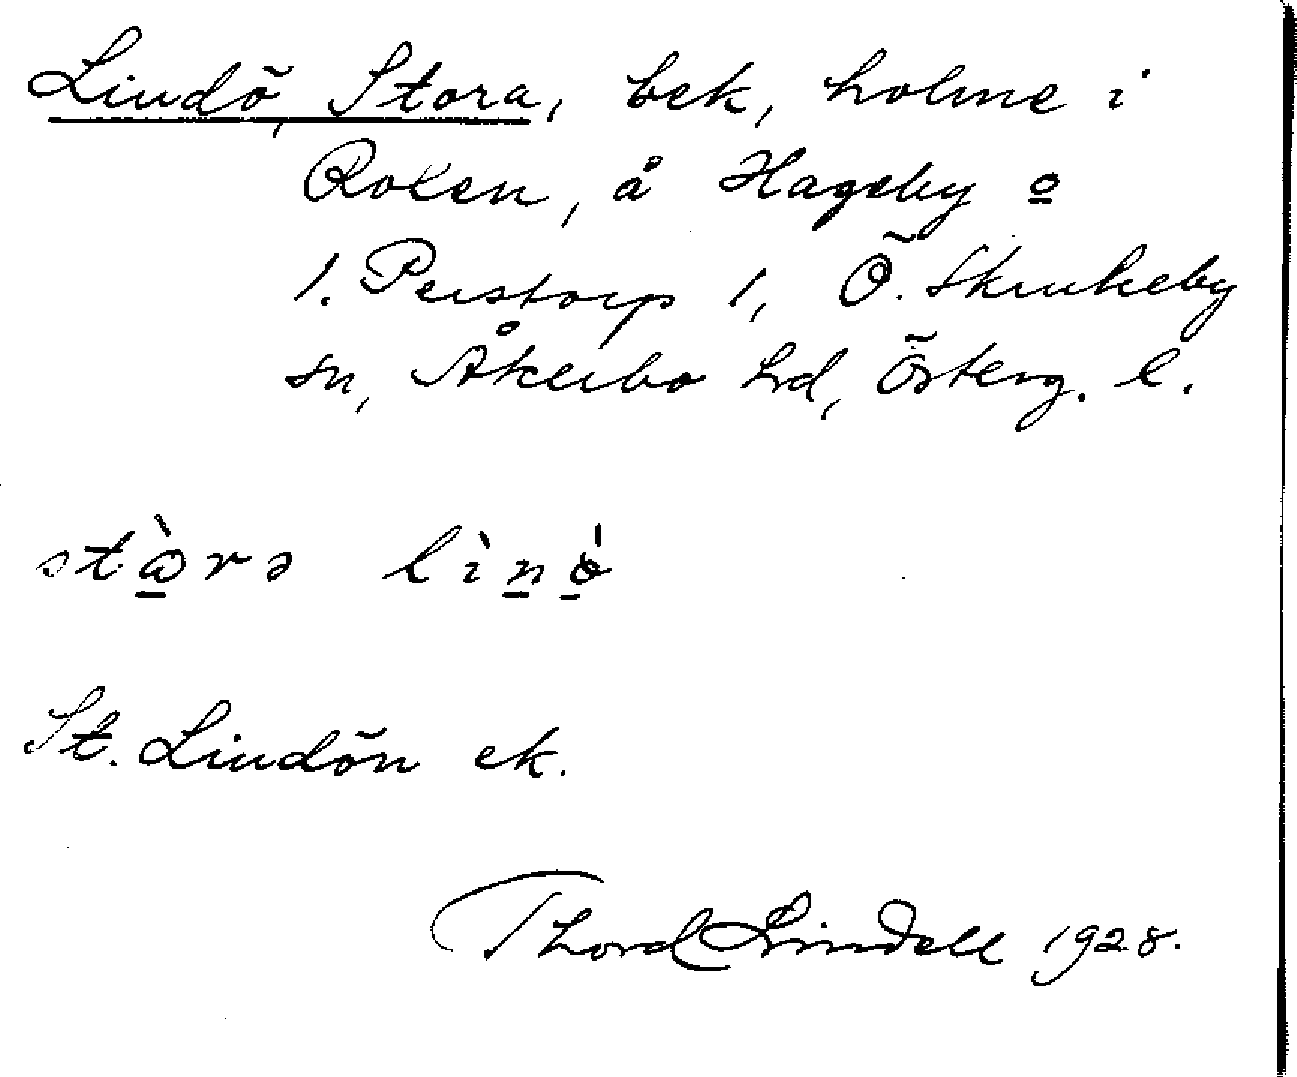 Lindö, Stora, bek, holme i
Roxen, å Hageby o
1. Perstorp 1, Ö. Skrukeby
sn, Åkerbo hd, Österg. l.
stωrə linö
St. Lindön ek.
Thord Lindell 1928.